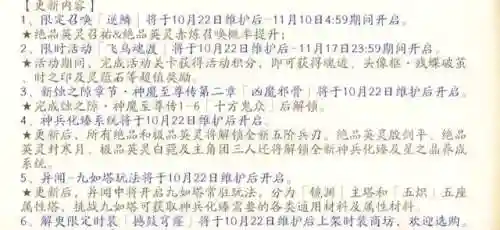 【更新内容】
1、限定召唤「逆鳞」将于10月22日维护后-11月10日4:59期间开启。
★绝品英灵召祐&绝品英灵赤炼召唤概率提升；
2、限时活动「飞鸟魂渡」将于10月22日维护后-11月17日23:59期间开启。
★活动期间，完成活动关卡获得活动积分，即可获得魂迹、头像框·残蝶破茧、时之印及灵蕴石等超值奖励。
3、新蚀之隙章节·神魔至尊传第二章「凶魔邪骨」将于10月22日维护后开启。
★完成蚀之隙·神魔至尊传1-6「十方鬼众」后解锁。
4、神兵化臻系统将于10月22日维护后开启。
★更新后，所有绝品和极品英灵将解锁全新五阶兵刃。绝品英灵胶剑平、绝品英灵封寒月、极品英灵白菀及主角团三人还将解锁全新神兵化臻及星之晶养成系统。
5、异闻-九如塔玩法将于10月22日维护后开启。
★更新后，异闻中将开启九如塔常驻玩法，分为「镜渊」主塔和「五炽」五座属性塔，挑战九如塔可获取神兵化臻需要的各类通用材料及属性材料。
6、解爽限定时装「撼鼓穹霆」将于10月22日维护后上架时装商坊，欢迎选购。